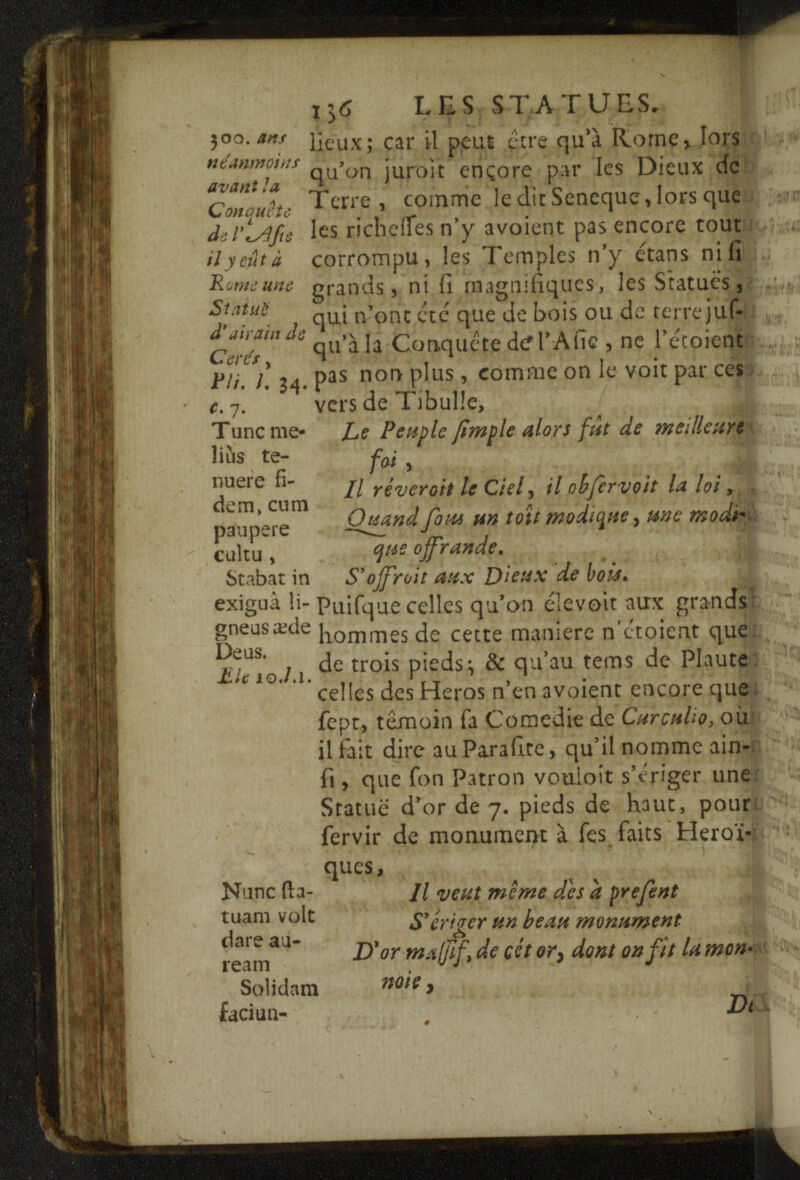 136 LES STATUES.
lieux; car il peut être qu'à Rome, lors
qu'on juroit ençore par les Dieux de
Terre, comme le dit Seneque, lors que
les richesses n'y avoient pas encore tout
corrompu, les Temples n'y étans ni si
grands, ni si magnifiques, les Statuës,
qui n'ont été que de bois ou de terre jus-
qu'à la Conquête de l'Asie, ne l'étoient
pas non plus, comme on le voit par ces
vers de Tibulle,
Le Peuple simple alors fût de meilleure
foi,
Il réveroit le Ciel, il observoit la loi,
Quand sous un toît modique, une modi-
que offrande.
S'offroit aux Dieux de bois.
Puisque celles qu'on élevoit aux grands
hommes de cette maniere n'étoient que
de trois pieds; & qu'au tems de Plaute
celles des Heros n'en avoient encore que
sept, têmoin sa Comedie de Curculio, où
il fait dire au Parasite, qu'il nomme ain-
si, que son Patron vouloit s'ériger une
Statuë d'or de 7. pieds de haut, pour
servir de monument à ses faits Heroï-
ques,
Il veut même dès à present
S'ériger un beau monument
D'or massif, de cét or, dont on fit la mon-
noie,
300. ans
néanmoins
avant la
Conquête
de l'Asie
il y eût à
Rome une
Statuë
d'airain de
Cerés,
Pli. l. 34.
c. 7.
Tunc me-
liùs te-
nuere fi-
dem, cum
paupere
cultu,
Stabat in
exiguâ li-
gneus æde
Deus.
Ele 10.l.1.
Nunc sta-
tuam volt
dare au-
ream
Solidam
faciun-